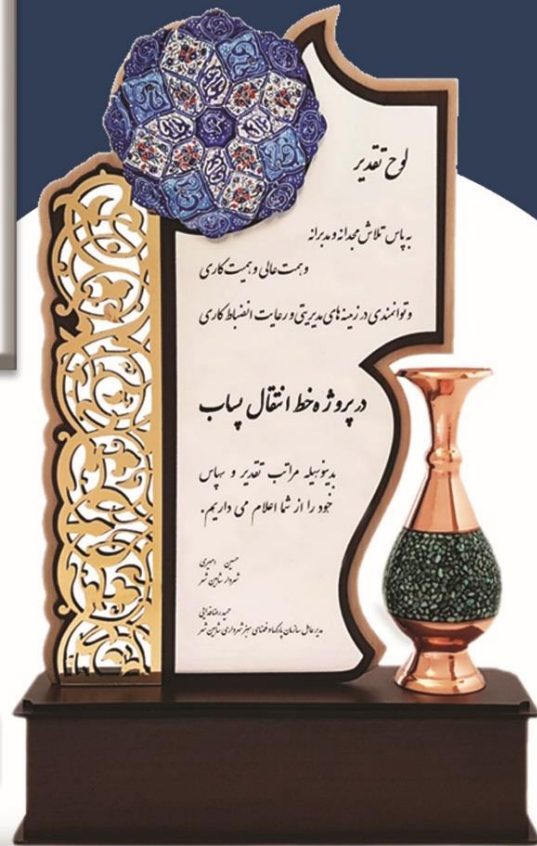 لوح تقدیر
به پاس تلاش مجدانه و مدبرانه
و همت عالی و حمیت کاری
و توانمندی در زمینه های مدیریتی و رعایت انضباط کاری
در پروژه خط انتقال پساب
بدینوسیله مراتب تقدیر و سپاس
خود را از شما اعلام می داریم.
حسین امیری
شهردار شاهین شهر
حمیدرضا فدایی
مدیرعامل سازمان پارکها و فضای سبز شهرداری شاهین شهر